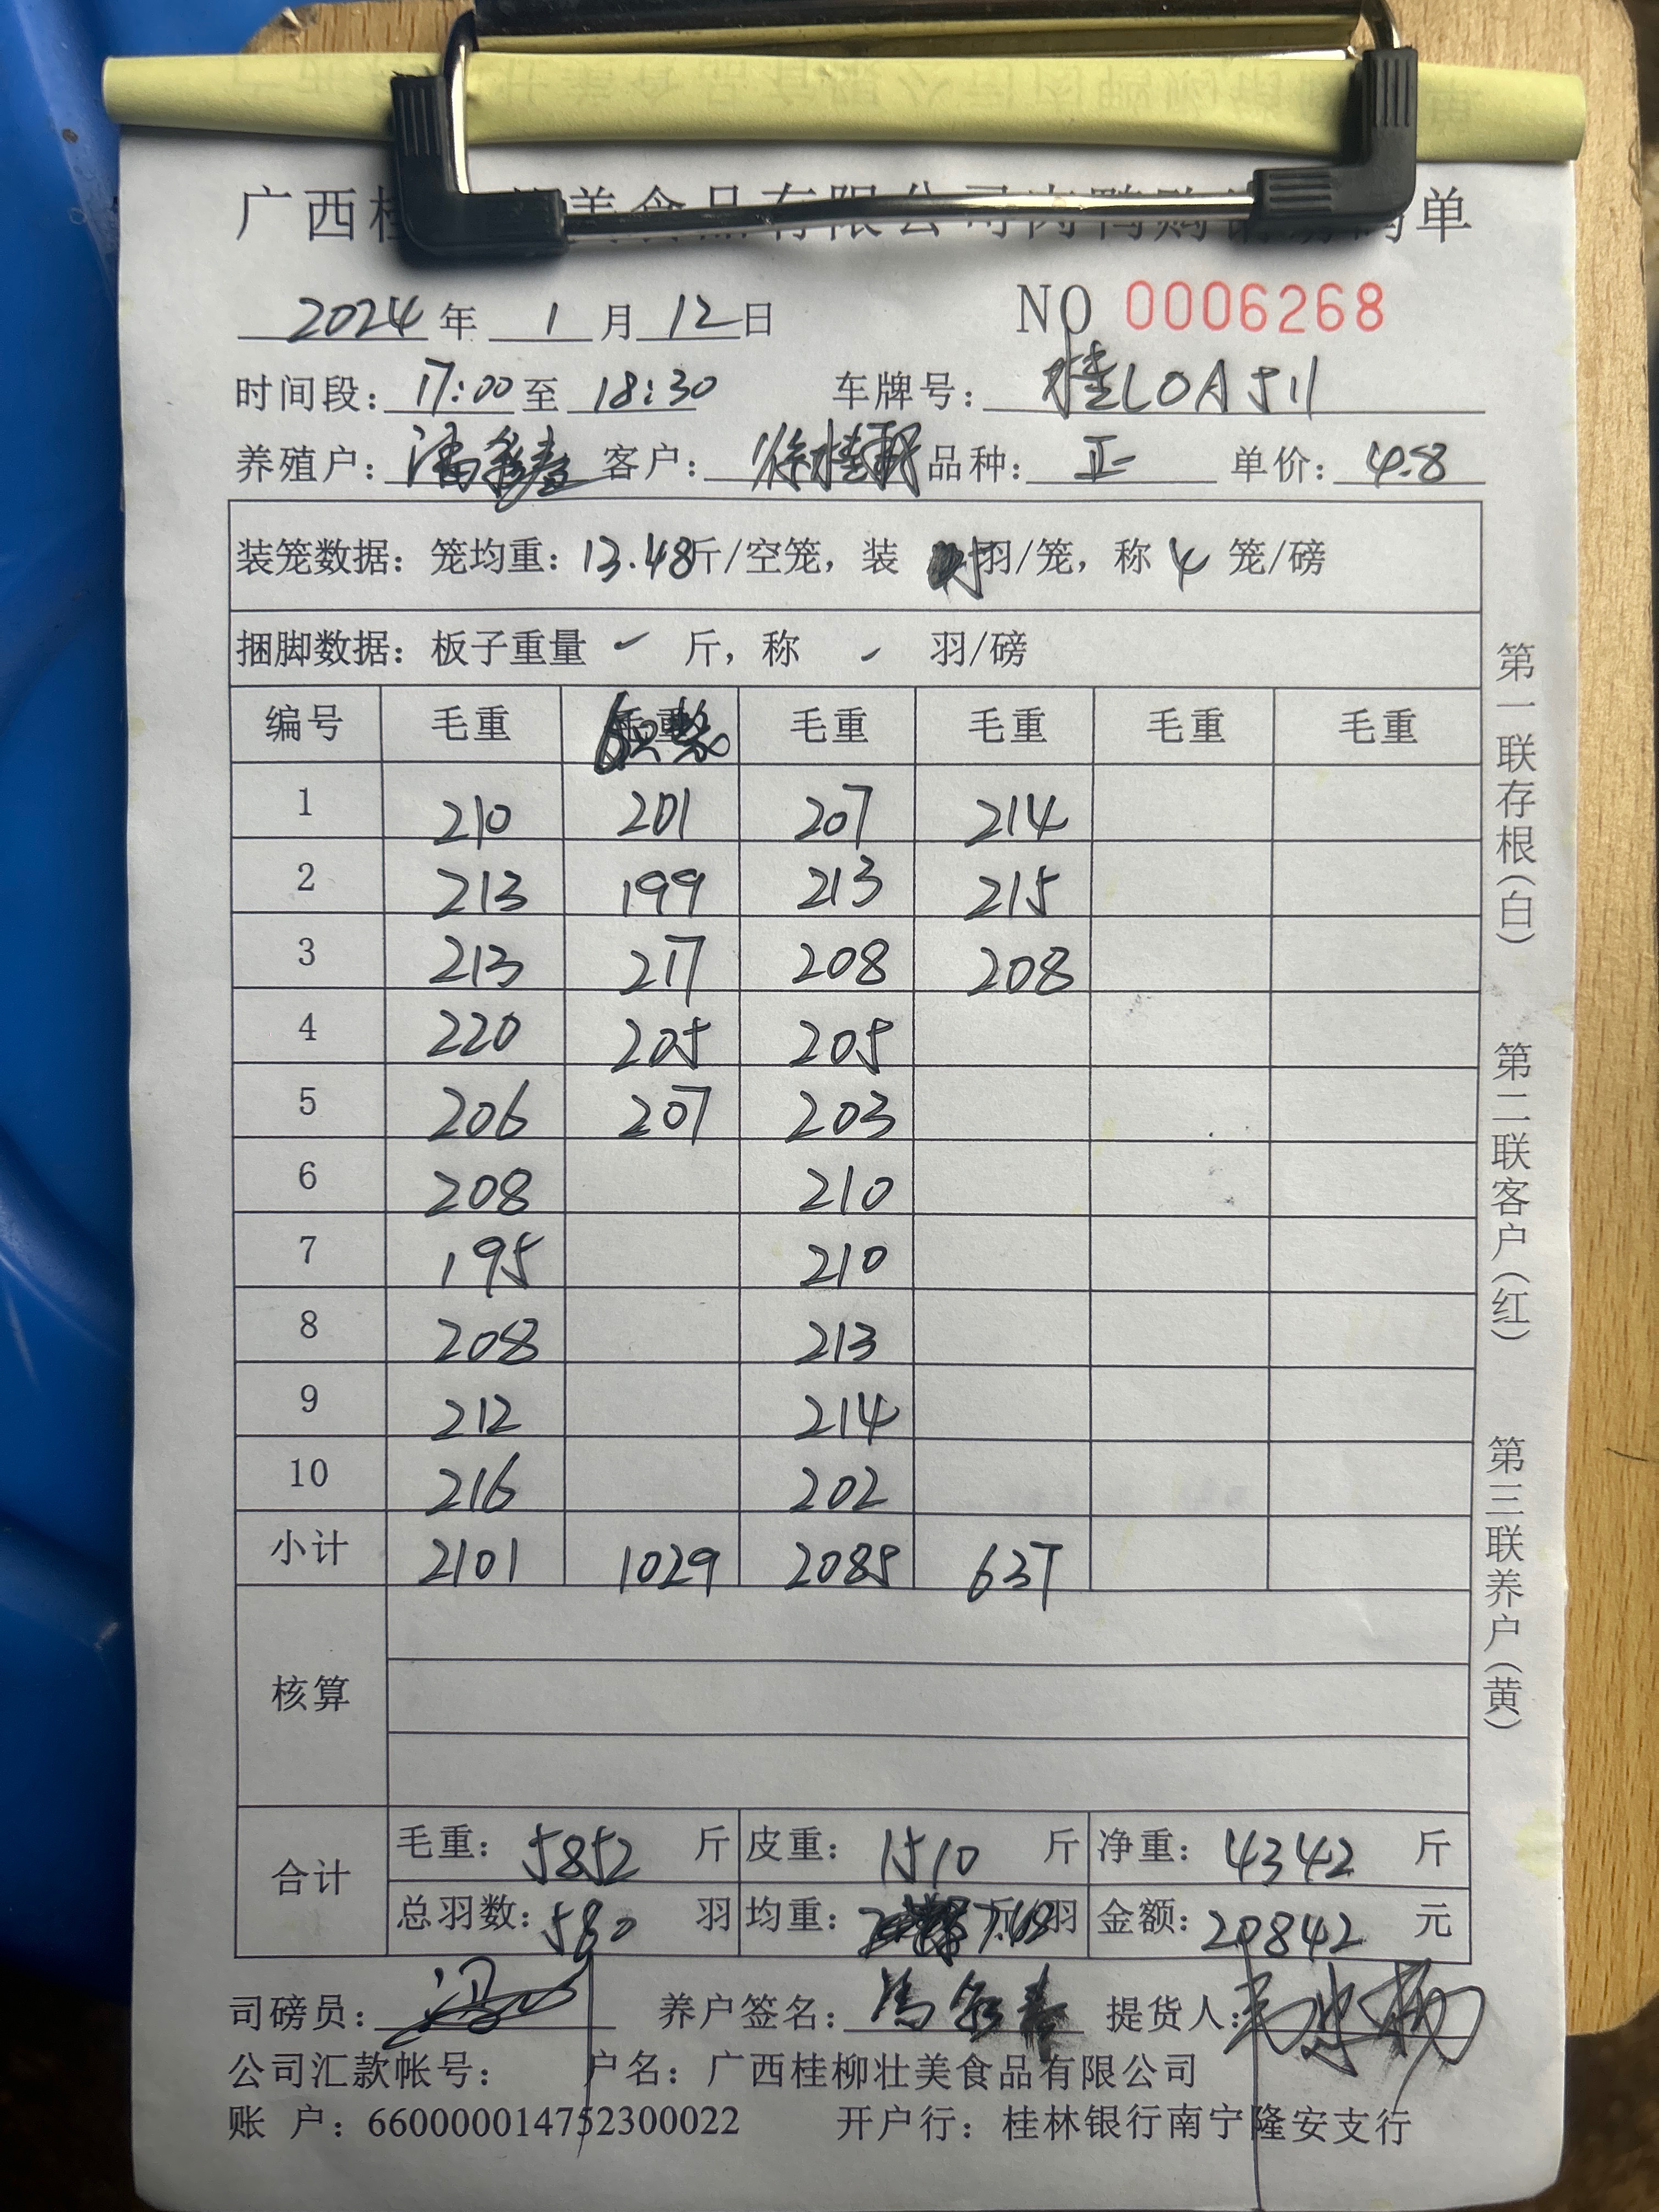 广西桂 美食品有限公司肉鸭购销磅码单
2024年 1月12日 NO 0006268
时间段：17:00至 18:30 车牌号：桂L0A511
养殖户：潘 客户：徐桂轩 品种：正 单价：4.8
装笼数据：笼均重：13.48斤/空笼，装 羽/笼，称 4 笼/磅
捆脚数据：板子重量 斤，称 羽/磅
编号 毛重 毛重 毛重 毛重 毛重
1 210 201 207 214
2 213 199 213 215
3 213 217 208 208
4 220 205 205
5 206 207 203
6 208 210
7 195 210
8 208 213
9 212 214
10 216 202
小计 2101 1029 2085 637
核算
合计 毛重：5852 斤 皮重：1510 斤 净重：4342 斤
总羽数：580 羽 均重： 羽 金额：20842 元
司磅员： 养户签名： 提货人：
公司汇款帐号： 户名：广西桂柳壮美食品有限公司
账 户：660000014752300022 开户行：桂林银行南宁隆安支行
第一联存根（白） 第二联客户（红） 第三联养户（黄）